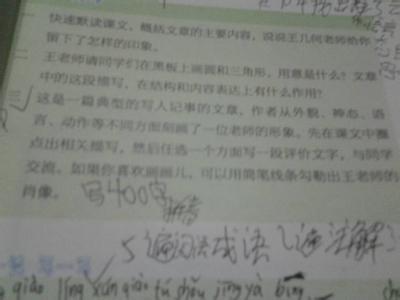 快速默读课文，概括文章的主要内容，说说王几何老师给你
留下了怎样的印象。
王老师请同学们在黑板上画圆和三角形，用意是什么？文章
中的这段描写，在结构和内容表达上有什么作用？
这是一篇典型的写人记事的文章，作者从外貌、神态、语
言、动作等不同方面刻画了一位老师的形象。先在课文中圈
点出相关描写，然后任选一个方面写一段评价文字，与同学
交流。如果你喜欢画画儿，可以用简笔线条勾勒出王老师的
肖像。 写400字
5遍词语 成语1遍注解
写一写
qiào líng xún qiáo tú shǒu jīng yà bīng